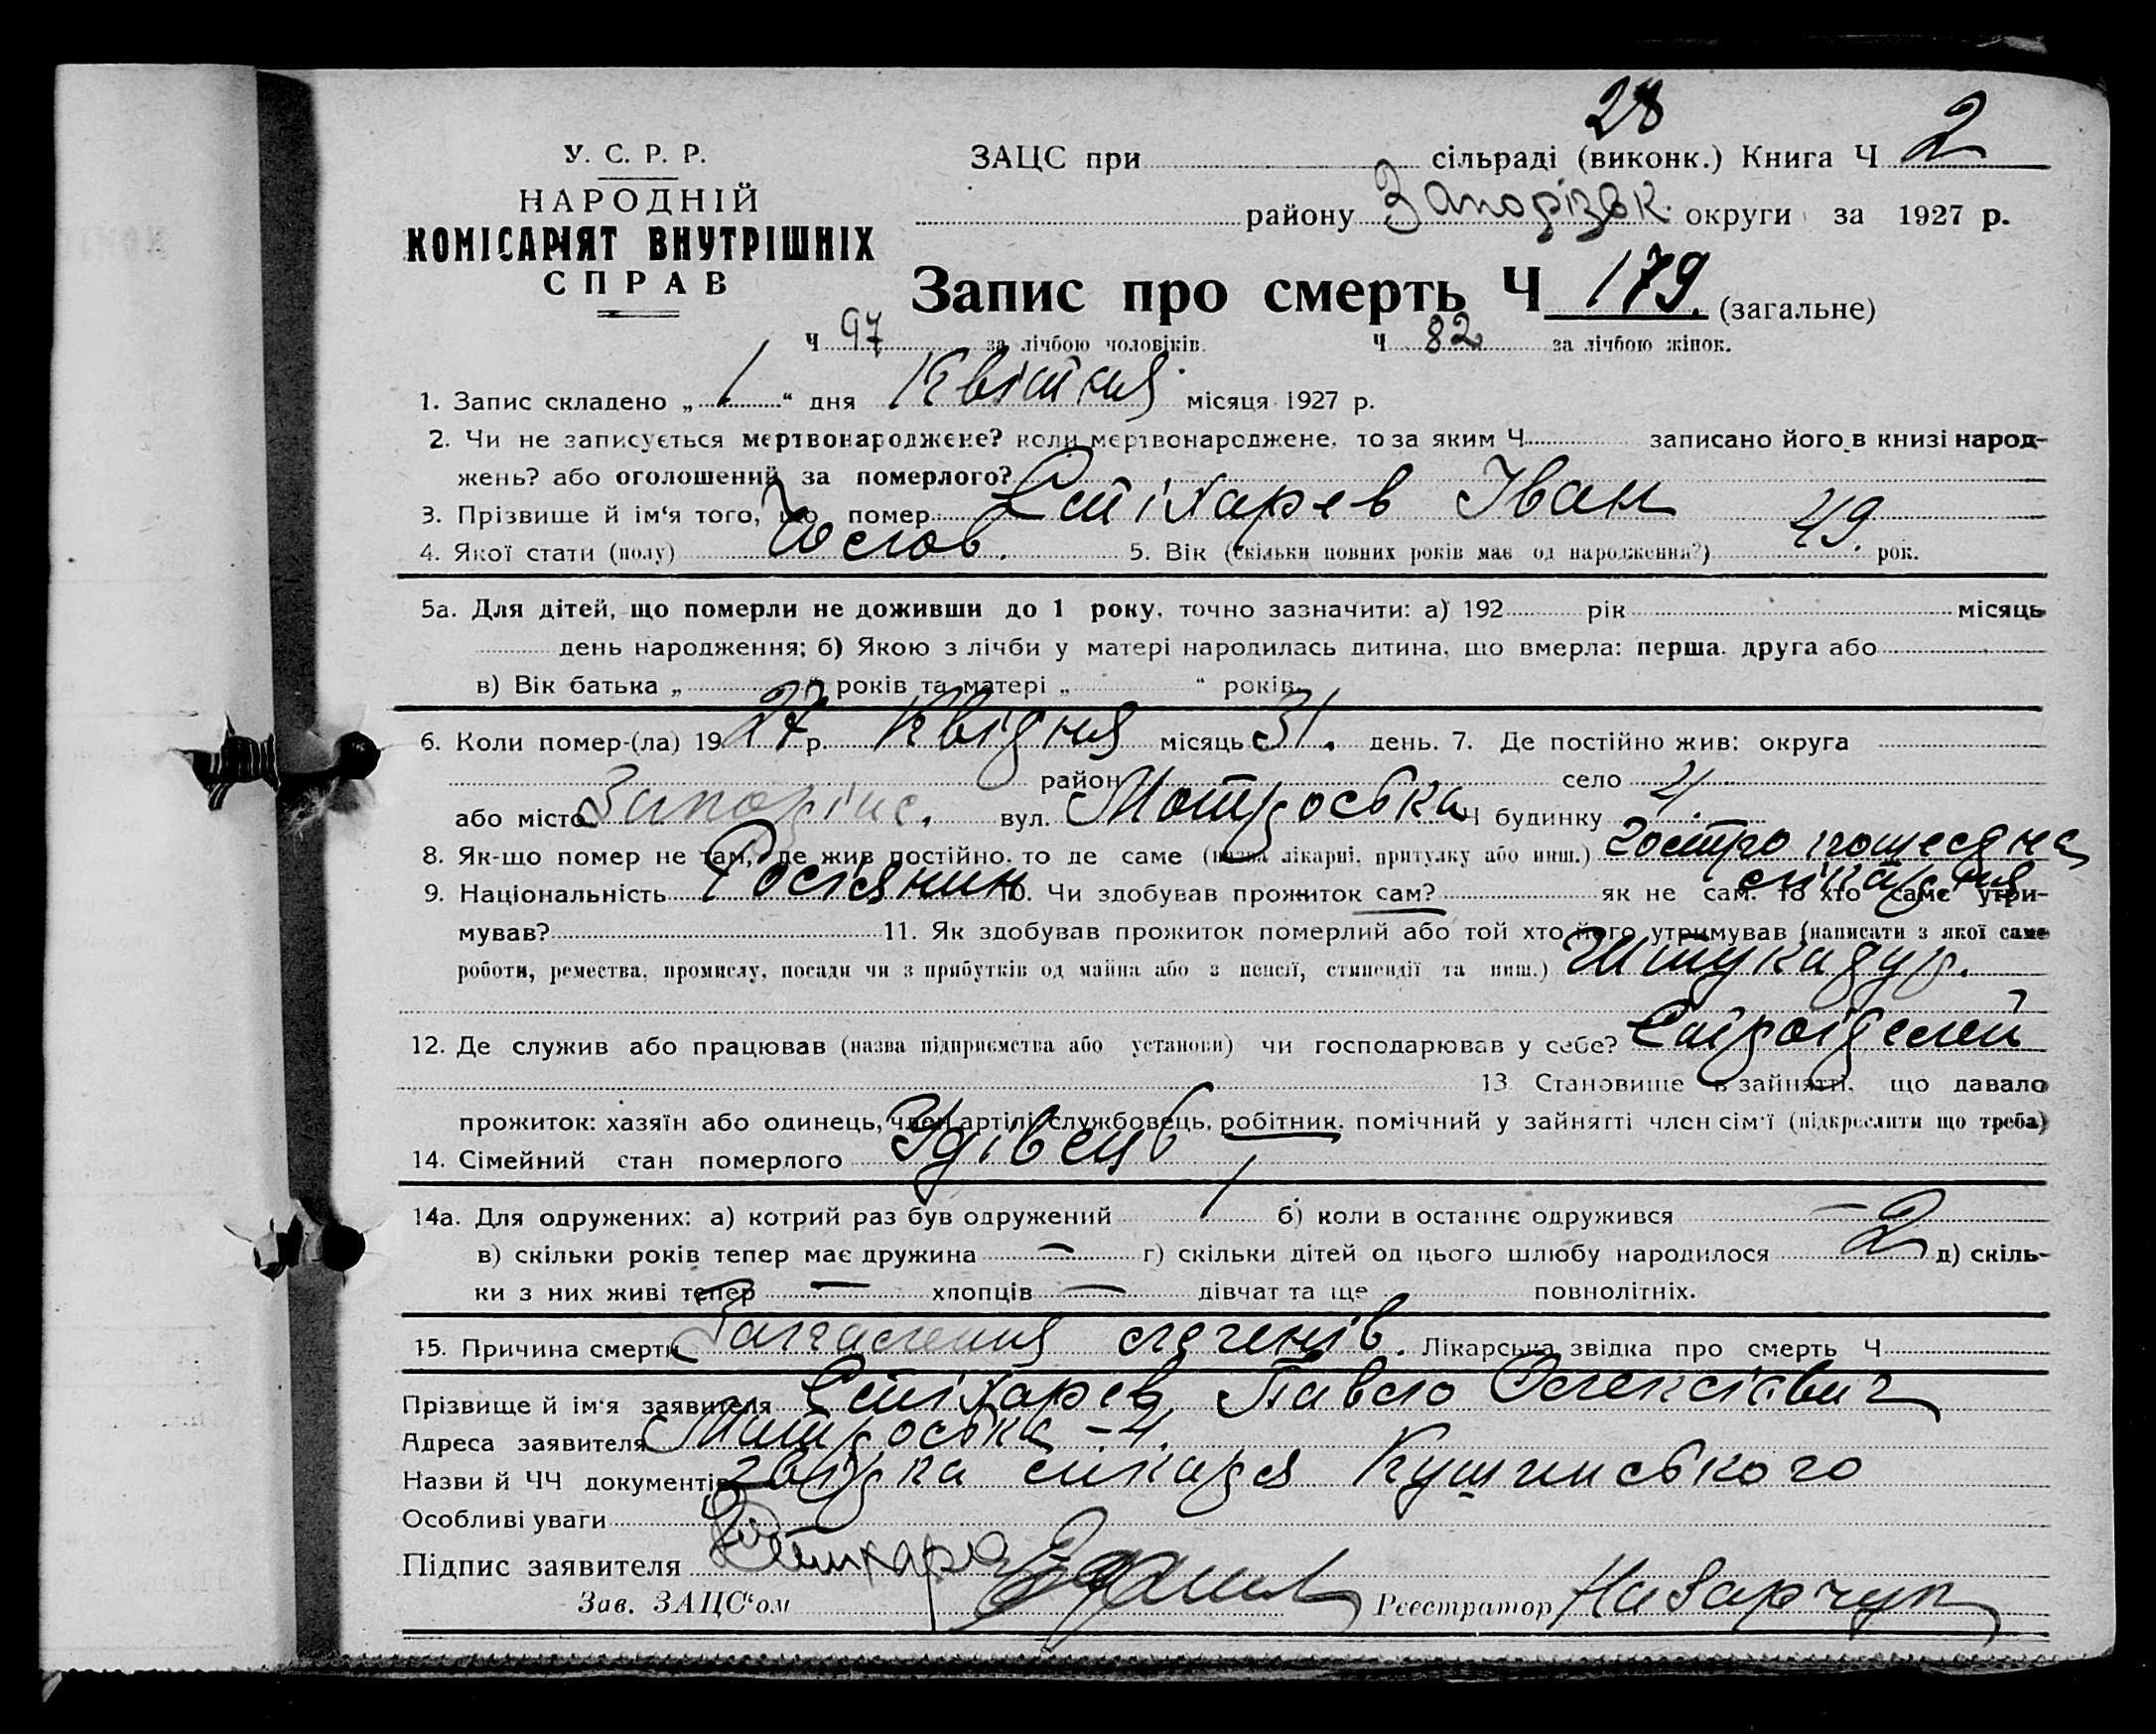 28
У. С. Р. Р.
ЗАЦС при сільраді (виконк.) Книга Ч 2
НАРОДНІЙ
району Запорізьк. округи за 1927 р.
КОМІСАРІЯТ ВНУТРІШНІХ
СПРАВ
Запис про смерть Ч 179. (загальне)
Ч 97 за лічбою чоловіків. Ч 82 за лічбою жінок.
1. Запис складено „ 1 “ дня Квітня місяця 1927 р.
2. Чи не записується мертвонароджене? коли мертвонароджене, то за яким Ч записано його в книзі народ-
жень? або оголошений за померлого?
3. Прізвище й ім‘я того, що помер Стіхарев Іван
4. Якої стати (полу) Чолов. 5. Вік (скільки повних років має од народження?) 49. рок.
5а. Для дітей, що померли не доживши до 1 року, точно зазначити: а) 192 рік місяць
день народження; б) Якою з лічби у матері народилась дитина, що вмерла: перша, друга або
в) Вік батька „ “ років та матері „ “ років.
6. Коли помер-(ла) 19 27 р. Квідня місяць 31. день. 7. Де постійно жив: округа
район село
або місто вул. Мотроська Ч будинку 4.
8. Як-що помер не там, де жив постійно, то де саме (назва лікарні, притулку або инш.)
9. Національність Росіянин 10. Чи здобував прожиток сам? як не сам, то хто саме утри-
мував? 11. Як здобував прожиток померлий або той хто його утримував (написати з якої саме
роботи, ремества, промислу, посади чи з прибутків од майна або з пенсії, стипендії та инш.) Штукадур.
12. Де служив або працював (назва підприємства або установи) чи господарював у себе?
13 Становище в зайнятті, що давало
прожиток: хазяїн або одинець, член артілі, службовець, робітник, помічний у зайнятті член сім‘ї (підкреслити що треба)
14. Сімейний стан померлого Удівець
14а. Для одружених: а) котрий раз був одружений 1 б) коли в останнє одружився —
в) скільки років тепер має дружина — г) скільки дітей од цього шлюбу народилося 2 д) скіль-
ки з них живі тепер — хлопців — дівчат та ще повнолітніх.
15. Причина смерти легенів. Лікарська звідка про смерть Ч
Прізвище й ім‘я заявителя Стіхарев Павло Олексієвич
Адреса заявителя Мотроська – 4.
Назви й ЧЧ документів звідка лікаря Кушчинського
Особливі уваги
Підпис заявителя Стихаре
Зав. ЗАЦС‘ом Реєстратор Назарчук